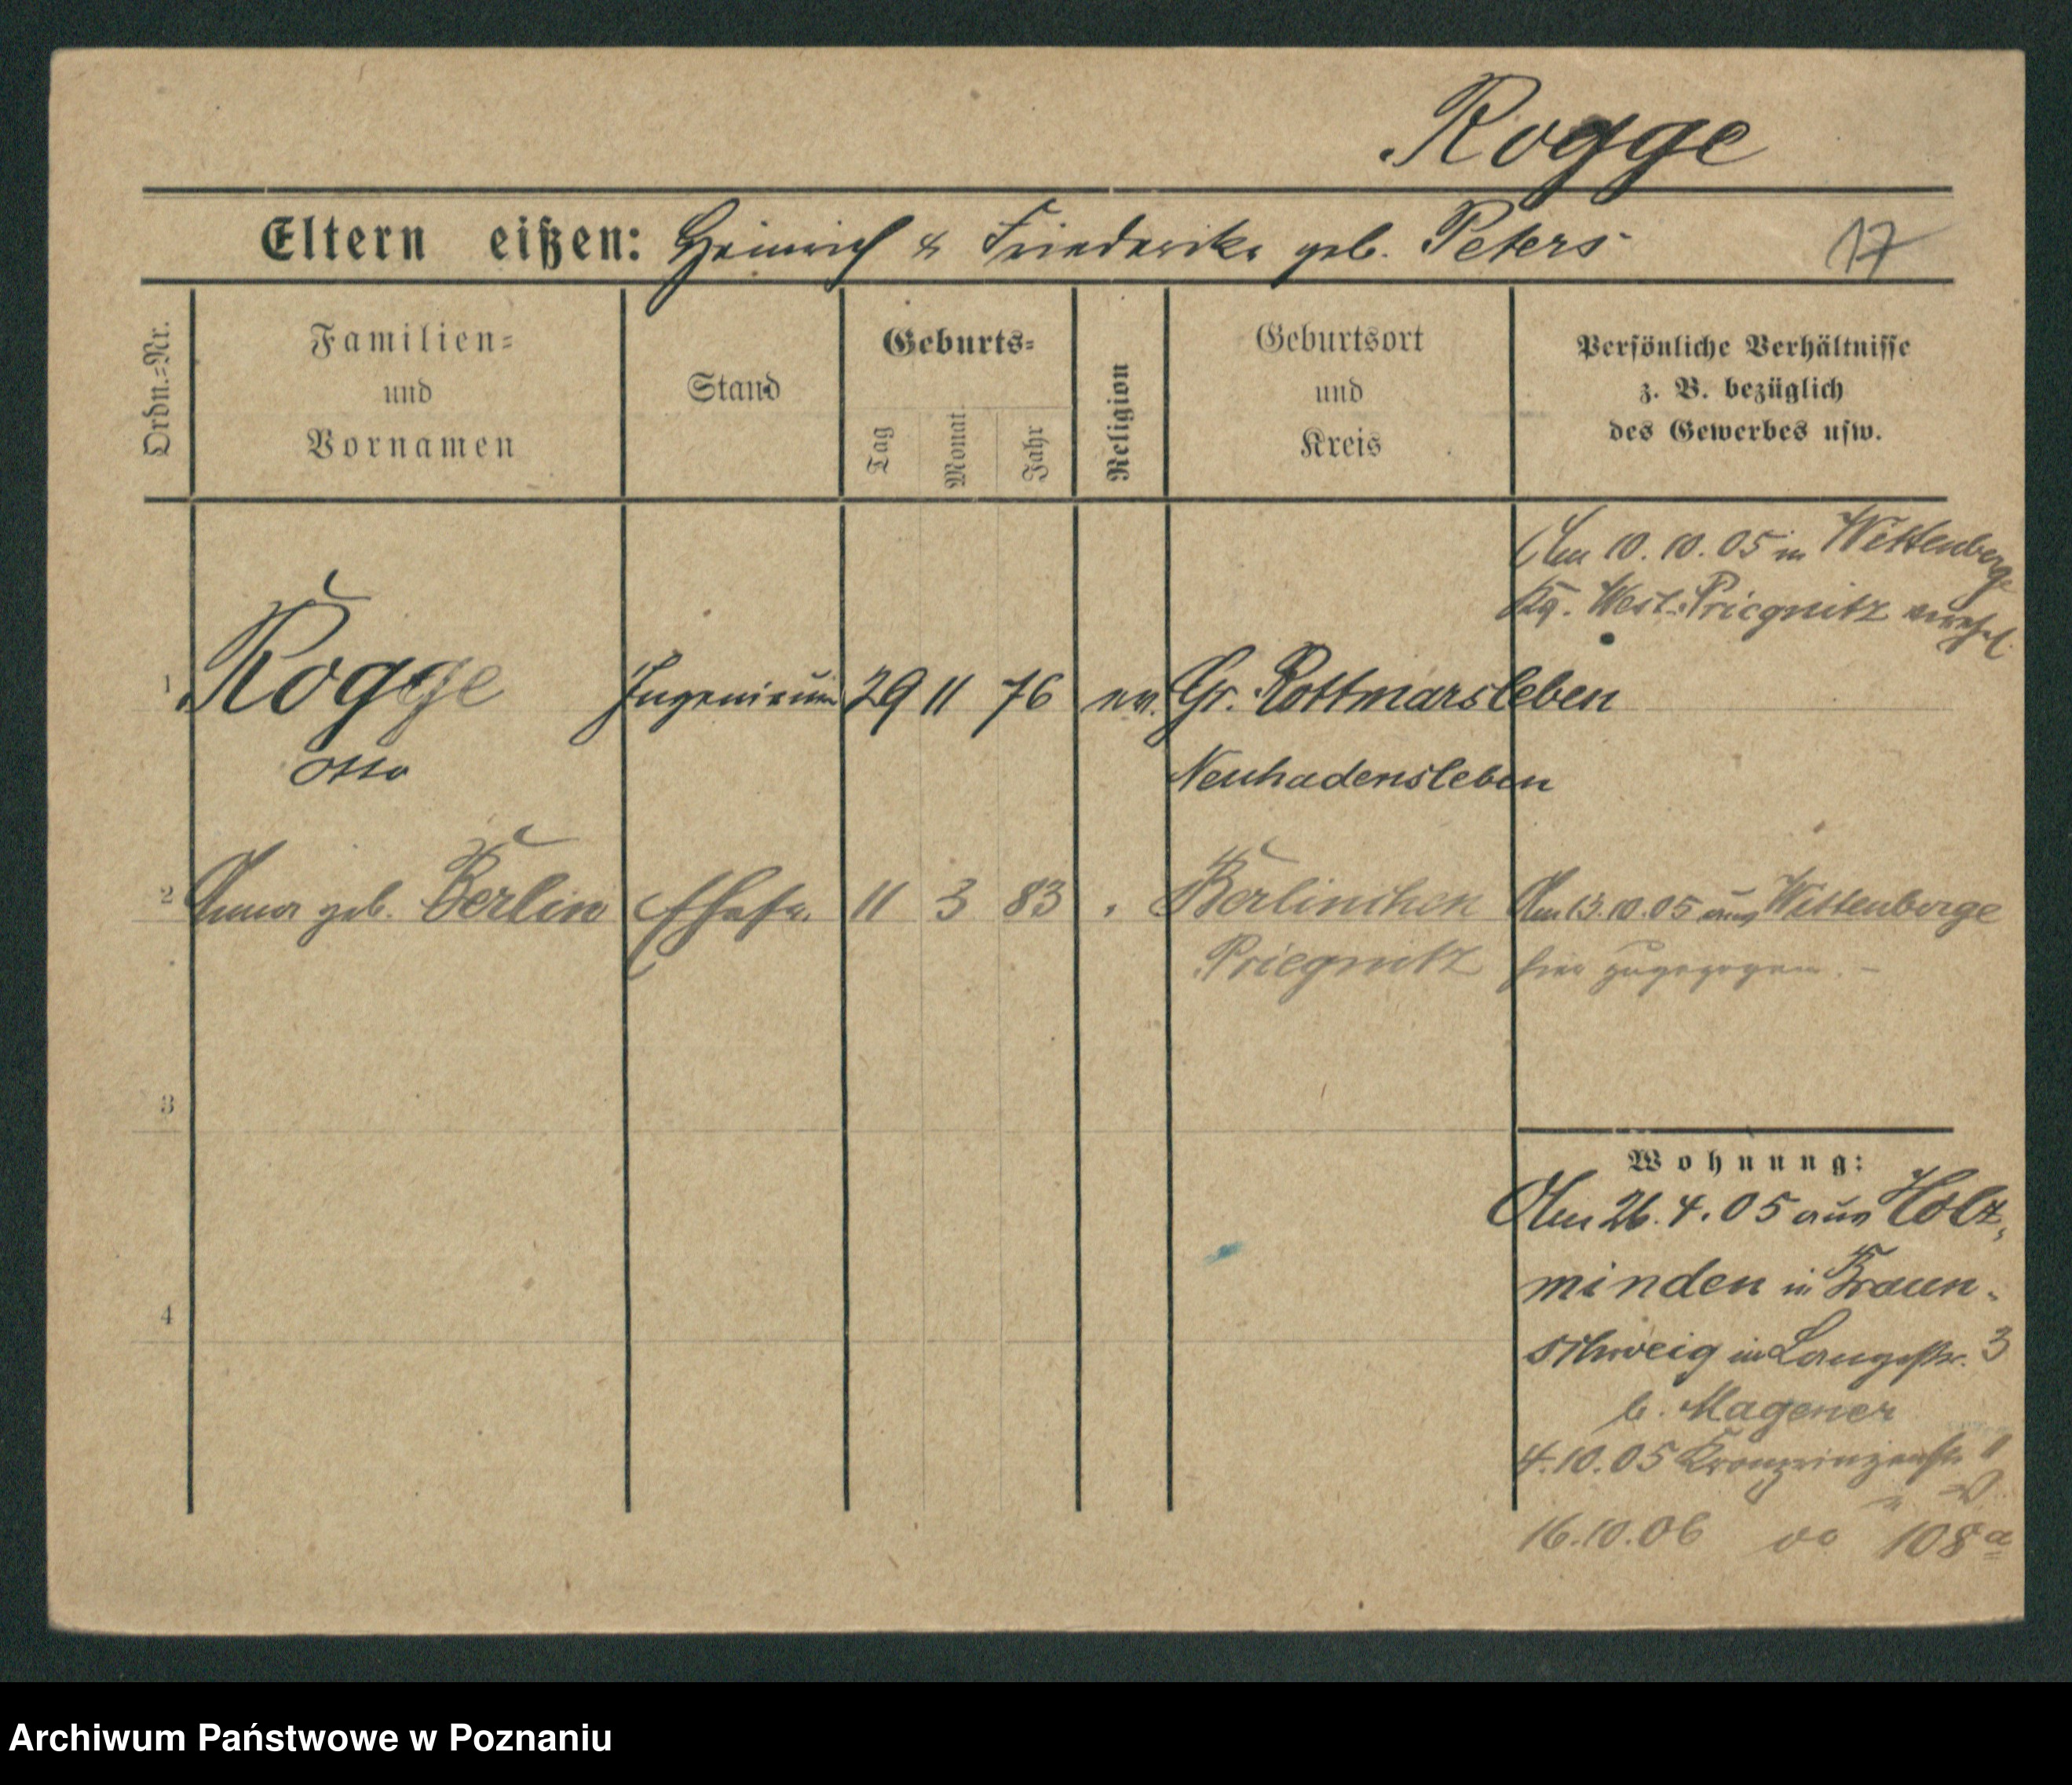 Rogge
Eltern eißen: Heinrich & Friedericke geb. Peters
17
Ordn.=Nr.
Familien=
und
Vornamen
Stand
Geburts=
Tag
Monat
Jahr
Religion
Geburtsort
und
Kreis
Persönliche Verhältnisse
z. B. bezüglich
des Gewerbes usw.
Am 10.10.05 in Wittenberge
West-Priegnitz verehel.
1 Rogge Ingenieur 29 11 76 ev. Gr. Rottmarsleben
Otto Neuhadensleben
2 Anna geb. Berlin Ehefr. 11 3 83 " Berlinchen Am 13.10.05 aus Wittenberge
Priegnitz hier zugezogen. –
3
4
Wohnung:
Am 26.4.05 aus Holz-
minden in Braun-
schweig in Langestr. 3
b. Magener
4.10.05 Kronprinzenstr. 11
16.10.06 do 108 a
Archiwum Państwowe w Poznaniu